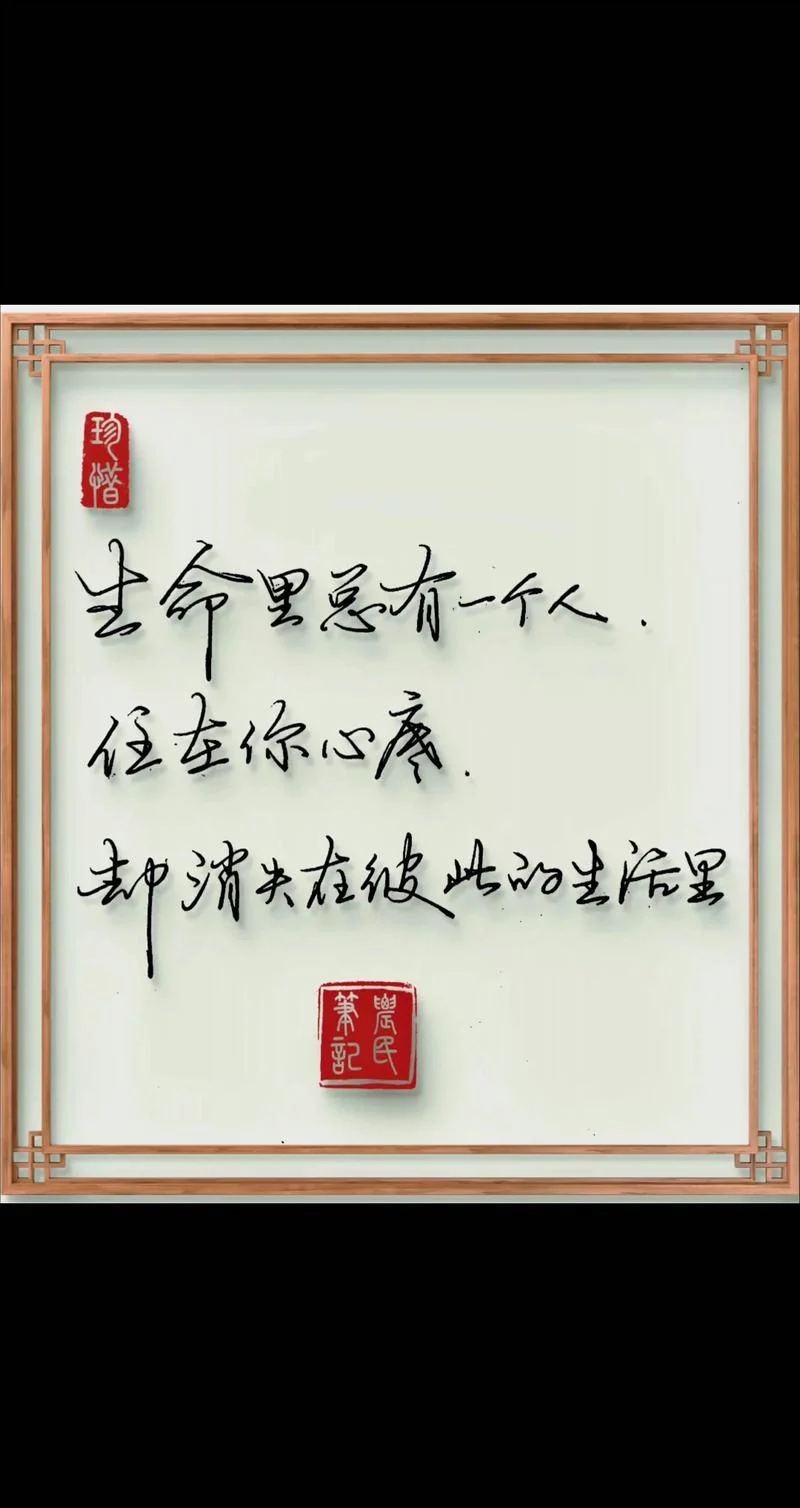 珍惜
生命里总有一个人.
住在你心底.
却消失在彼此的生活里
農民
筆記